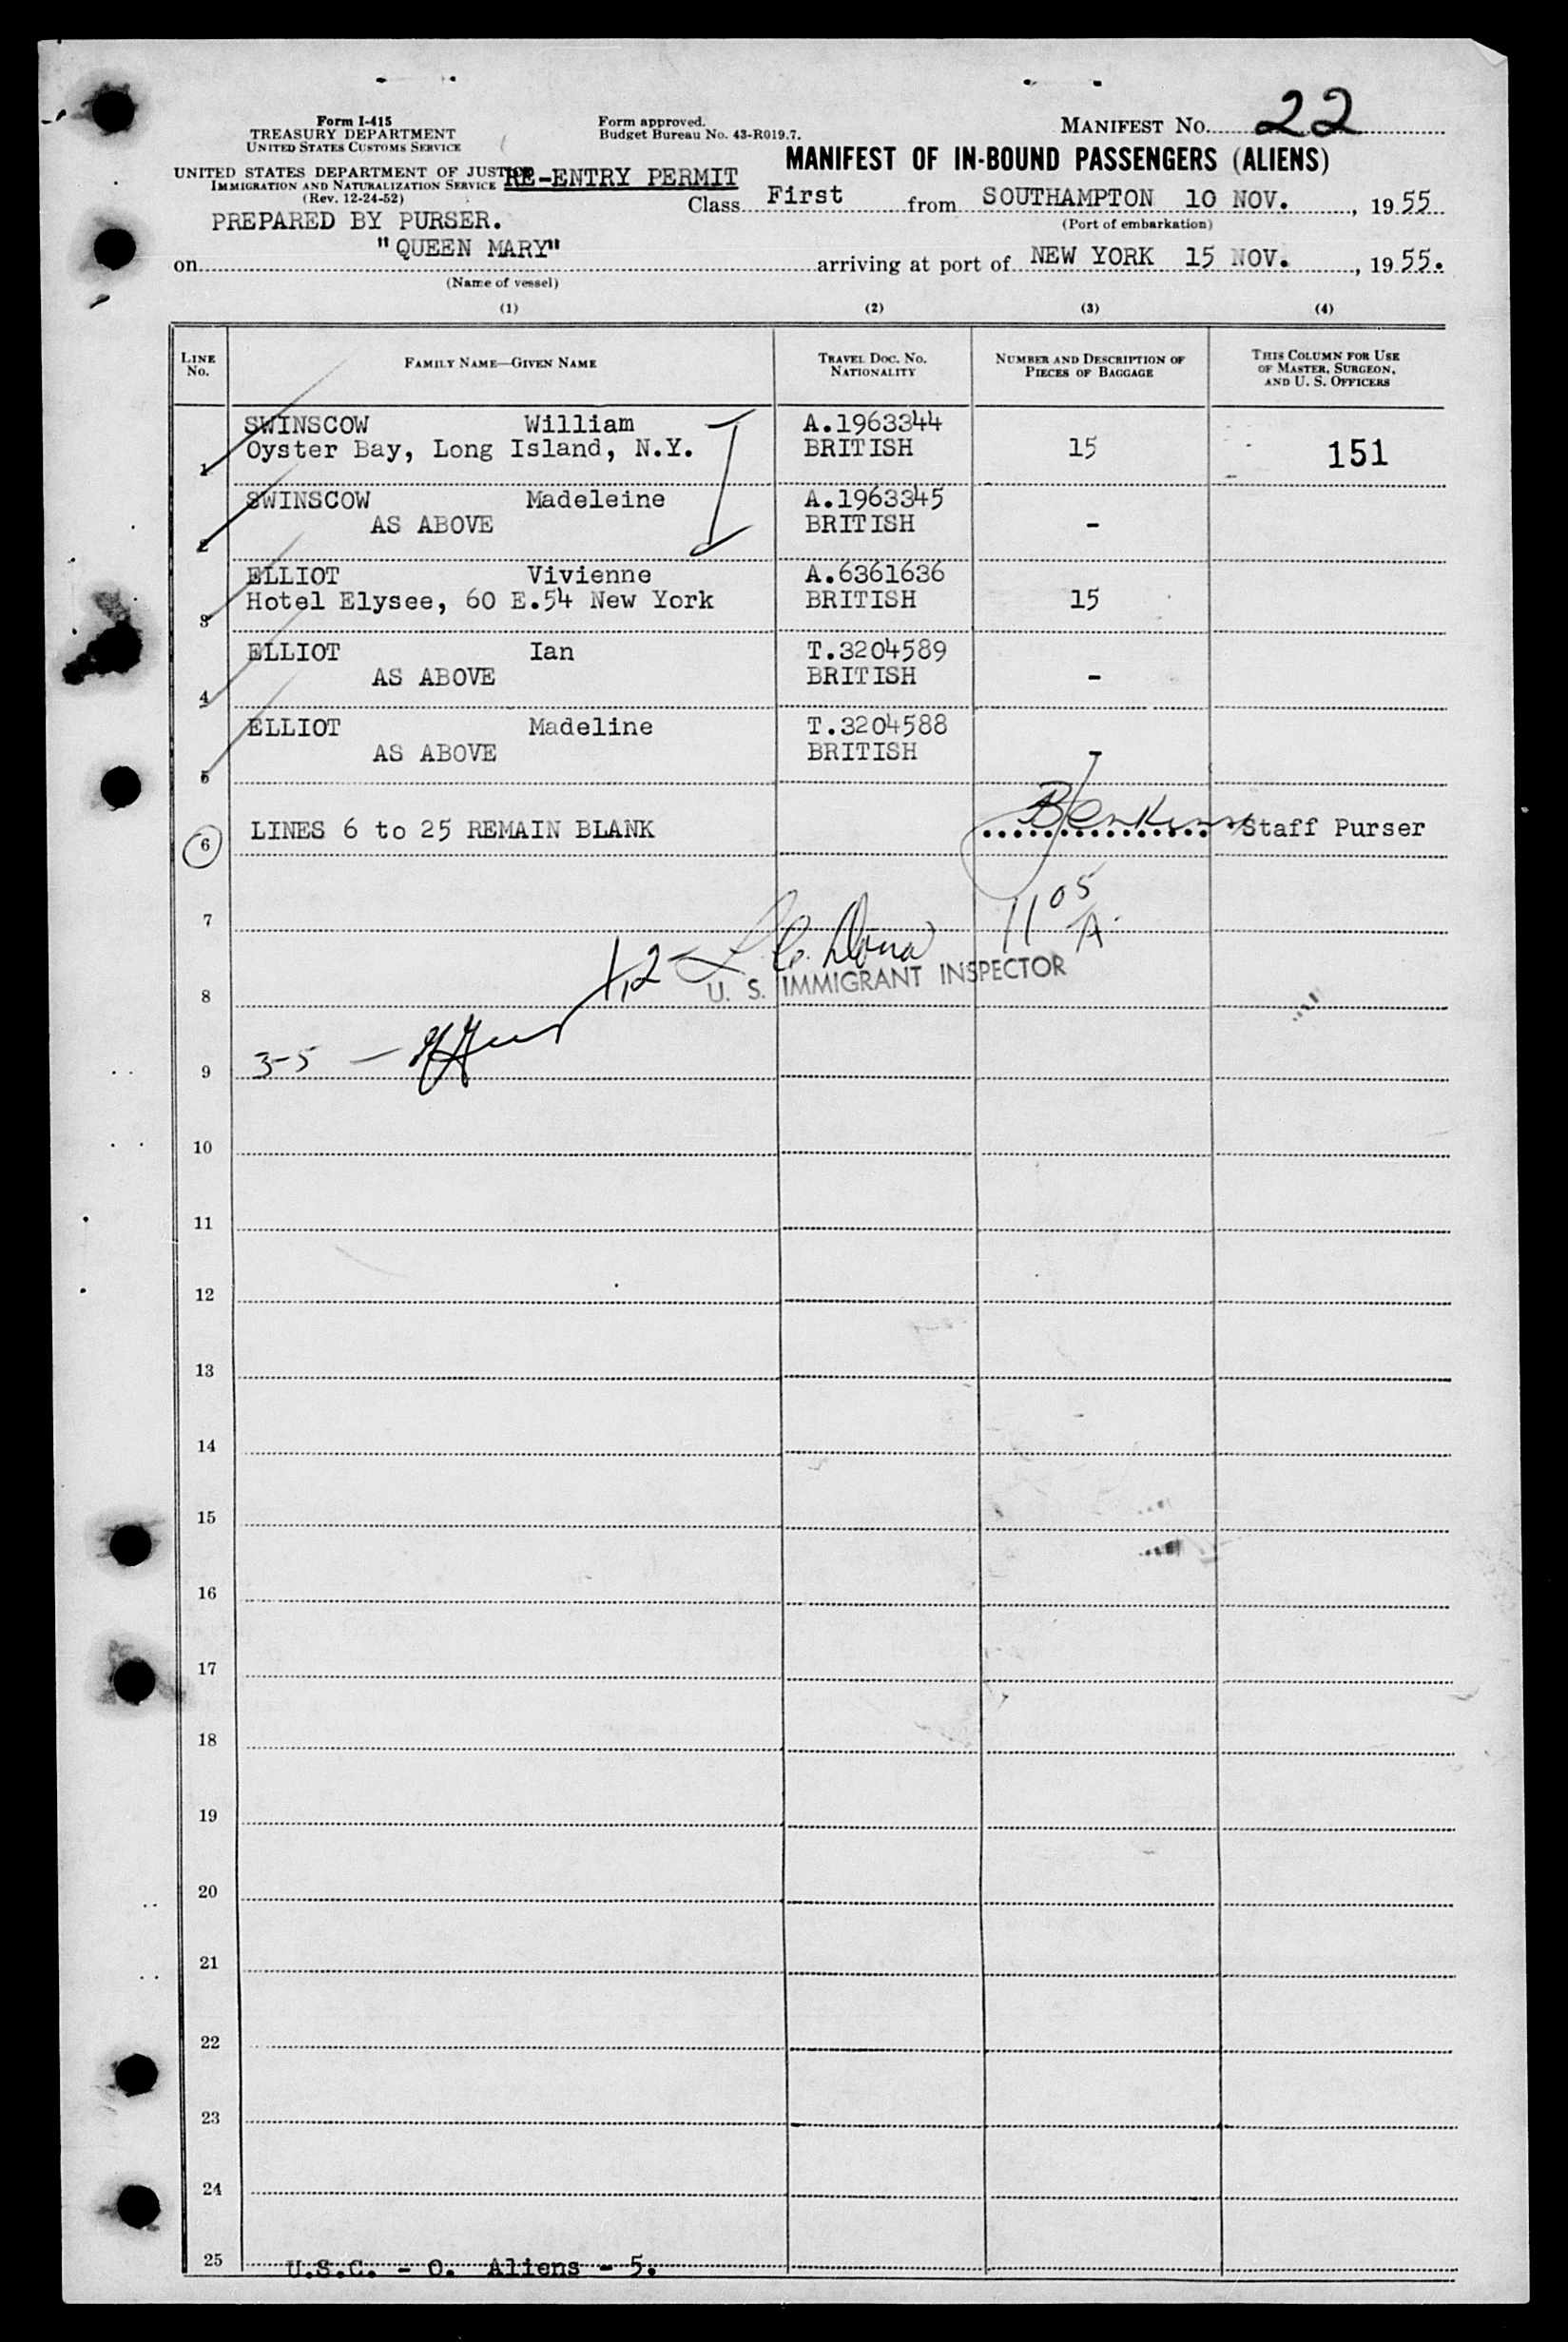 Form I-415
TREASURY DEPARTMENT
UNITED STATES CUSTOMS SERVICE
UNITED STATES DEPARTMENT OF JUSTICE
IMMIGRATION AND NATURALIZATION SERVICE
(Rev. 12-24-52)
PREPARED BY PURSER.
Form approved.
Budget Bureau No. 43-R019.7.
RE-ENTRY PERMIT
MANIFEST NO. 22
MANIFEST OF IN-BOUND PASSENGERS (ALIENS)
Class First from SOUTHAMPTON 10 NOV., 1955
(Port of embarkation)
on "QUEEN MARY" arriving at port of NEW YORK 15 NOV., 1955.
(Name of vessel)
(1) (2) (3) (4)
LINE NO. FAMILY NAME—GIVEN NAME TRAVEL DOC. NO. NATIONALITY NUMBER AND DESCRIPTION OF PIECES OF BAGGAGE THIS COLUMN FOR USE OF MASTER, SURGEON, AND U. S. OFFICERS
SWINSCOW William A.1963344
1 Oyster Bay, Long Island, N.Y. BRITISH 15 151
SWINSCOW Madeleine A.1963345
2 AS ABOVE BRITISH -
ELLIOT Vivienne A.6361636
3 Hotel Elysee, 60 E.54 New York BRITISH 15
ELLIOT Ian T.3204589
4 AS ABOVE BRITISH -
ELLIOT Madeline T.3204588
5 AS ABOVE BRITISH -
6 LINES 6 to 25 REMAIN BLANK Staff Purser
7 11 05 A
8 1,2 U. S. IMMIGRANT INSPECTOR
9 3-5 —
10
11
12
13
14
15
16
17
18
19
20
21
22
23
24
25 U.S.C. - 0. Aliens - 5.